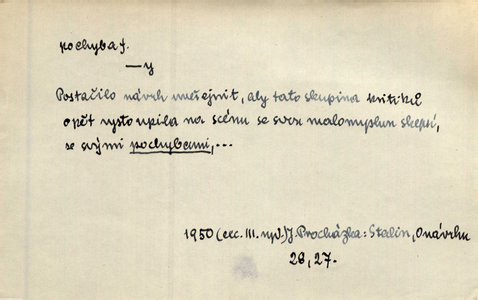 pochyba f.
—y
Postačilo návrh uveřejnit, aby tato skupina kritiků
opět vystoupila na scénu se svou malomyslnou skepsí,
se svými pochybami,...
1950 (cec. III. vyd.) J. Procházka: Stalin, O návrhu
28, 27.